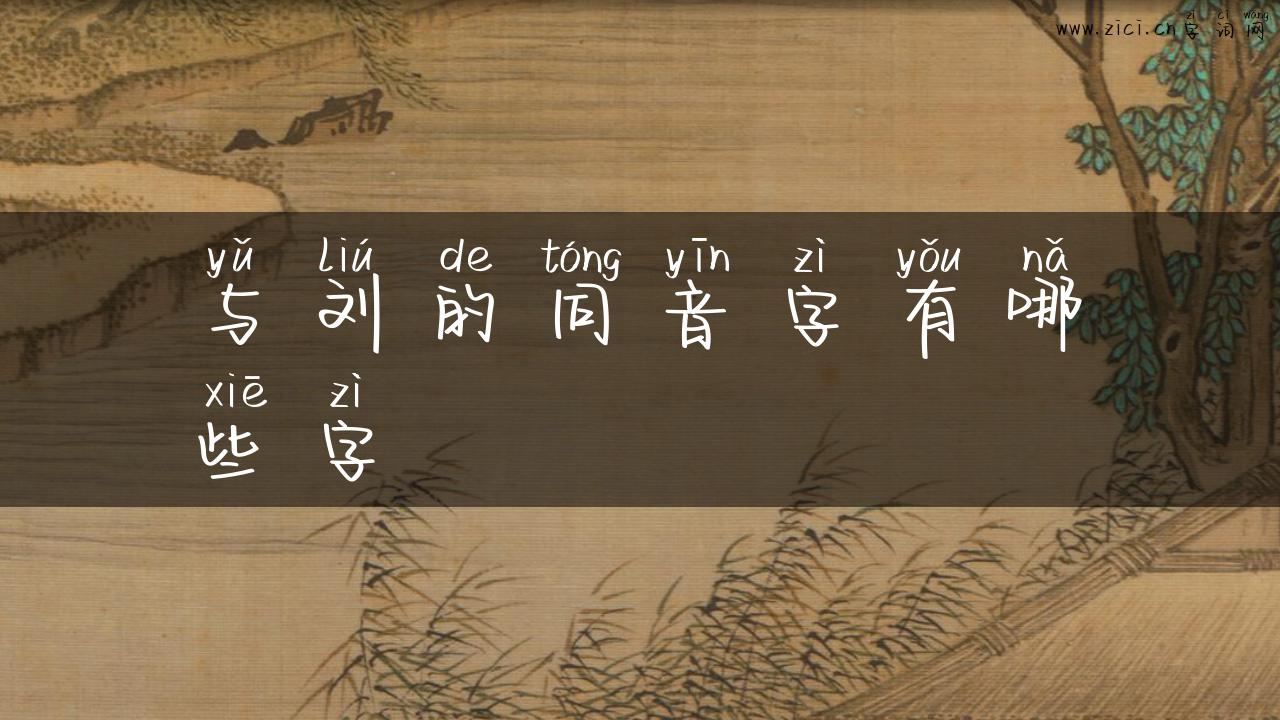 zì cí wǎng
www.zici.cn字词网
yǔ liú de tóng yīn zì yǒu nǎ
与刘的同音字有哪
xiē zì
些字